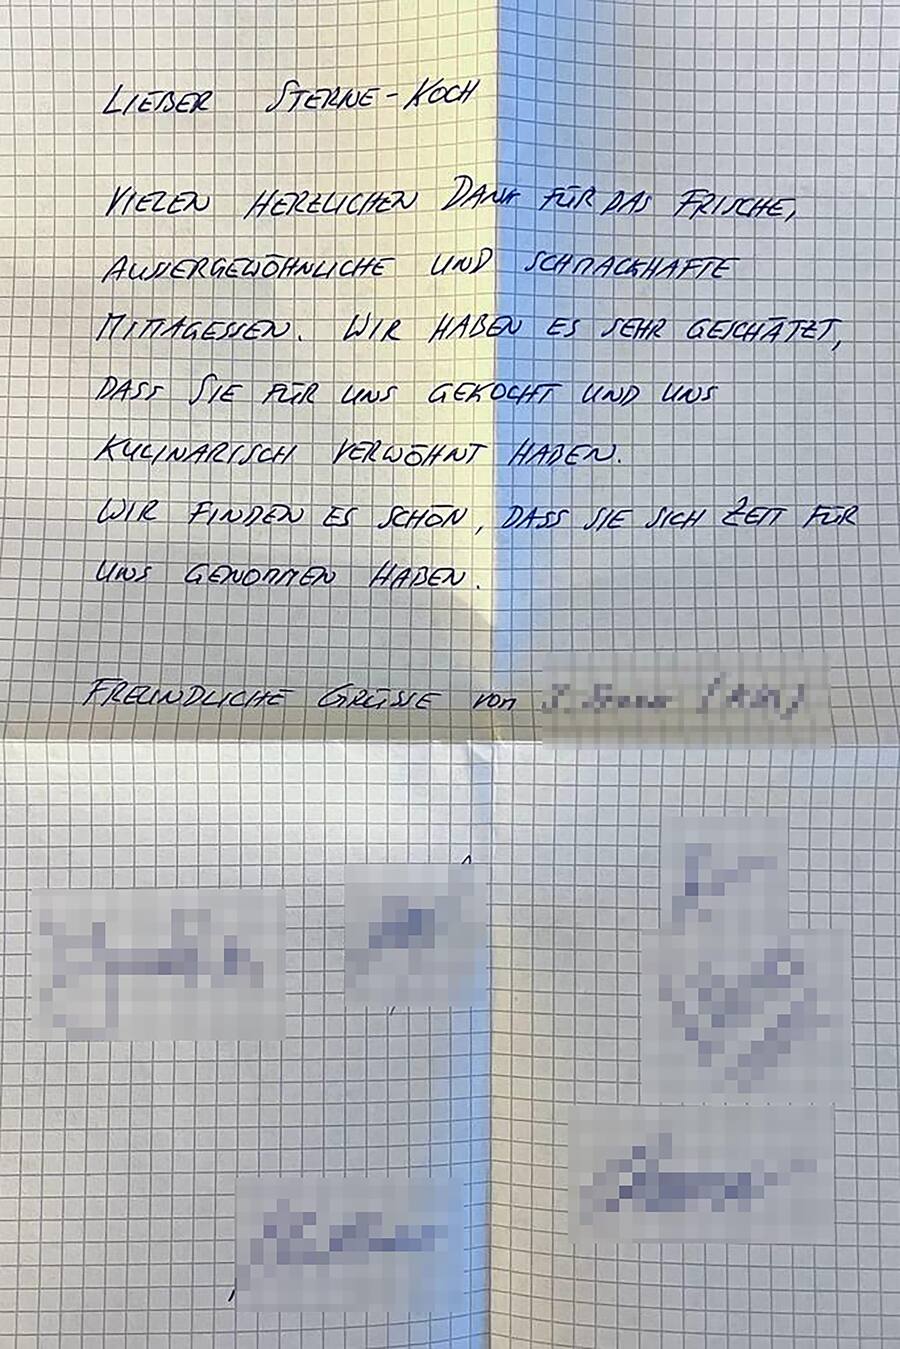 LIEBER STERNE-KOCH
VIELEN HERZLICHEN DANK FÜR DAS FRISCHE,
AUSSERGEWÖHNLICHE UND SCHMACKHAFTE
MITTAGESSEN. WIR HABEN ES SEHR GESCHÄTZT,
DASS SIE FÜR UNS GEKOCHT UND UNS
KULINARISCH VERWÖHNT HABEN.
WIR FINDEN ES SCHÖN, DASS SIE SICH ZEIT FÜR
UNS GENOMMEN HABEN.
FREUNDLICHE GRÜSSE von